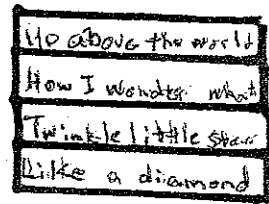 Up above the world
How I wonder what
Twinkle little star
Like a diamond